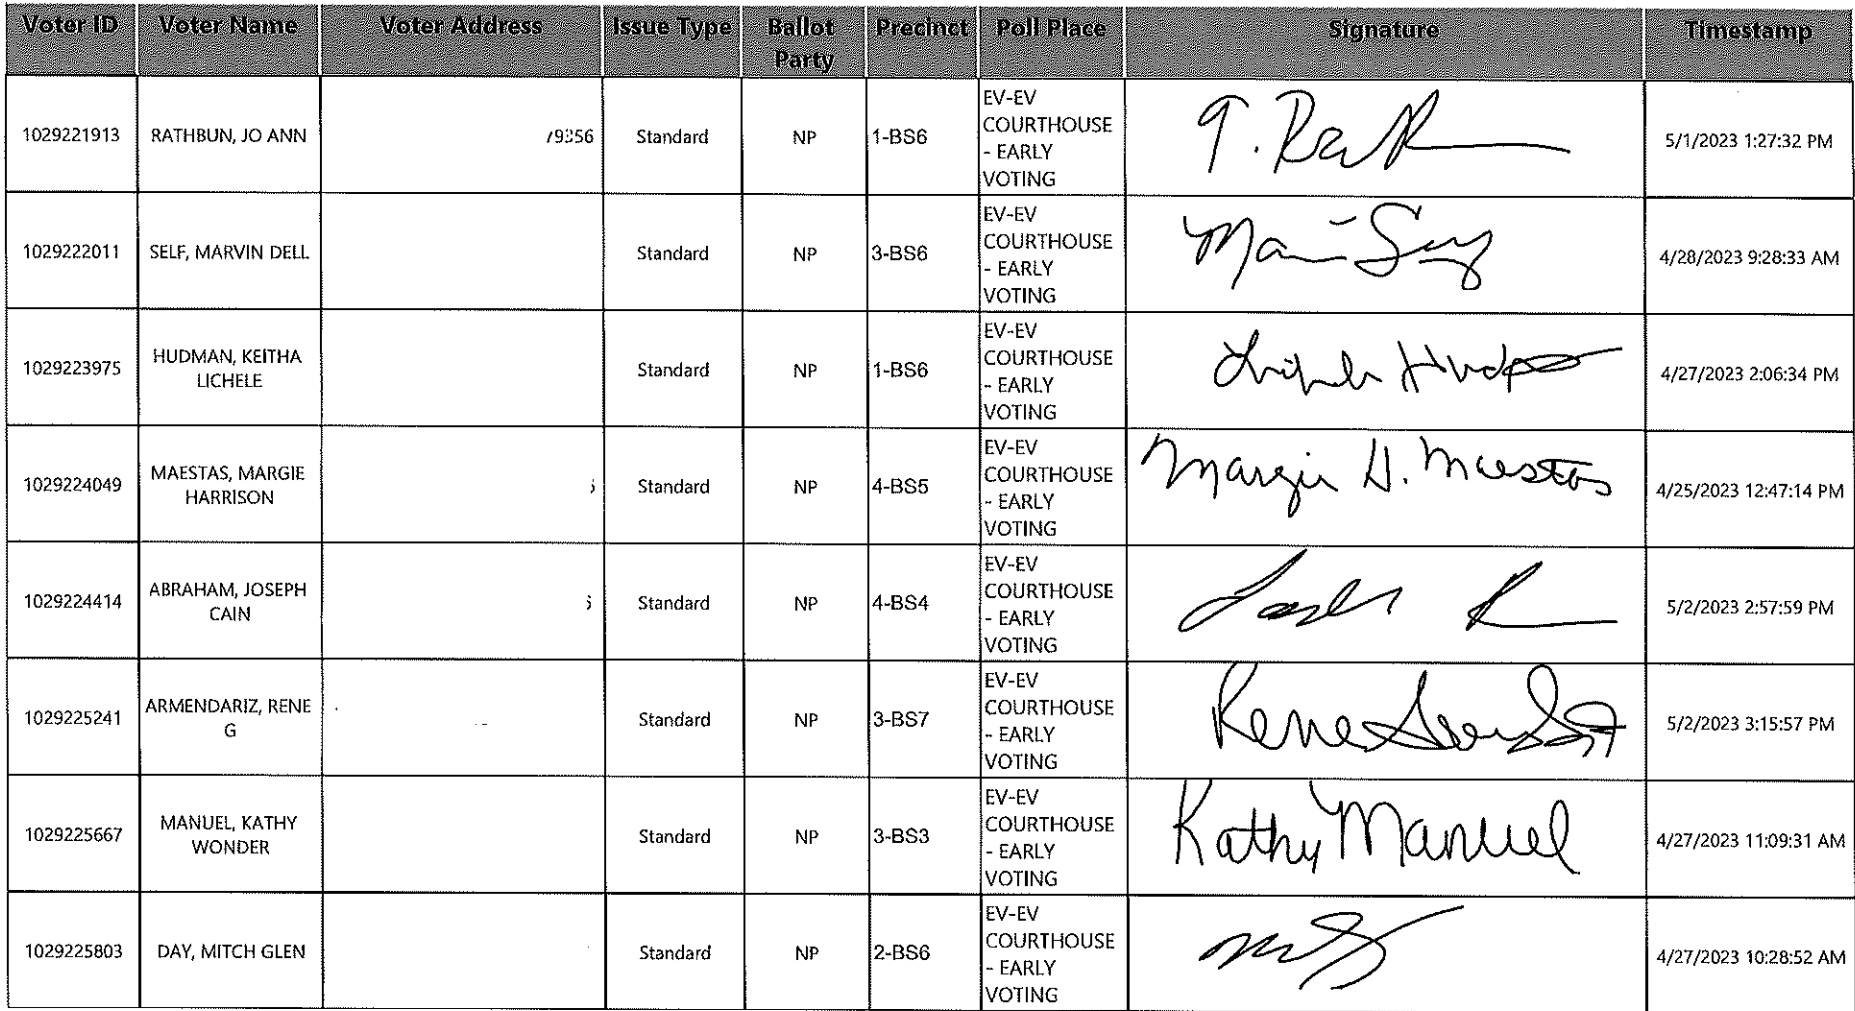 Voter ID Voter Name Voter Address Issue Type Ballot Party Precinct Poll Place Signature Timestamp
1029221913 RATHBUN, JO ANN 79356 Standard NP 1-BS6 EV-EV COURTHOUSE - EARLY VOTING 5/1/2023 1:27:32 PM
1029222011 SELF, MARVIN DELL Standard NP 3-BS6 EV-EV COURTHOUSE - EARLY VOTING 4/28/2023 9:28:33 AM
1029223975 HUDMAN, KEITHA LICHELE Standard NP 1-BS6 EV-EV COURTHOUSE - EARLY VOTING 4/27/2023 2:06:34 PM
1029224049 MAESTAS, MARGIE HARRISON Standard NP 4-BS5 EV-EV COURTHOUSE - EARLY VOTING Margie H. Maestas 4/25/2023 12:47:14 PM
1029224414 ABRAHAM, JOSEPH CAIN Standard NP 4-BS4 EV-EV COURTHOUSE - EARLY VOTING 5/2/2023 2:57:59 PM
1029225241 ARMENDARIZ, RENE G Standard NP 3-BS7 EV-EV COURTHOUSE - EARLY VOTING Rene 5/2/2023 3:15:57 PM
1029225667 MANUEL, KATHY WONDER Standard NP 3-BS3 EV-EV COURTHOUSE - EARLY VOTING Kathy Manuel 4/27/2023 11:09:31 AM
1029225803 DAY, MITCH GLEN Standard NP 2-BS6 EV-EV COURTHOUSE - EARLY VOTING 4/27/2023 10:28:52 AM